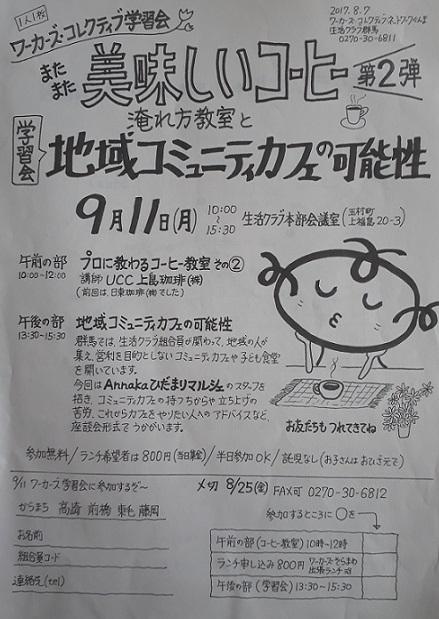 1人1枚
ワーカーズ・コレクティブ学習会
2017.8.7
ワーカーズ・コレクティブネットワークぐんま
生活クラブ群馬
0270-30-6811
またまた 美味しいコーヒー 第2弾
淹れ方教室と
学習会 地域コミュニティカフェの可能性
9月11日(月) 10:00～15:30 生活クラブ本部会議室(玉村町上福島20-3)
午前の部 プロに教わるコーヒー教室 その②
10:00~12:00) 講師 UCC上島珈琲(株)
(前回は、日東珈琲(株)でした)
午後の部 地域コミュニティカフェの可能性
13:30~15:30) 群馬では、生活クラブ組合員が関わって、地域の人が
集え、営利を目的としないコミュニティカフェや子ども食堂
を開いています。
今回は Annakaひだまりマルシェのスタッフを
招き、コミュニティカフェの持つちからや立ち上げの
苦労、これからカフェをやりたい人へのアドバイスなど、
座談会形式でうかがいます。
お友だちもつれてきてね
参加無料/ランチ希望者は800円(当日集金)/半日参加OK/託児なし(お子さんはおひざ元で)
9/11 ワーカーズ学習会に参加するぞ~ 〆切 8/25(金) FAX可 0270-30-6812
からまち 高崎 前橋 東毛 藤岡
参加するところに○を
お名前
組合員コード
連絡先(tel)
午前の部(コーヒー教室) 10時~12時
ランチ申し込み 800円
午後の部(学習会) 13:30~15:30